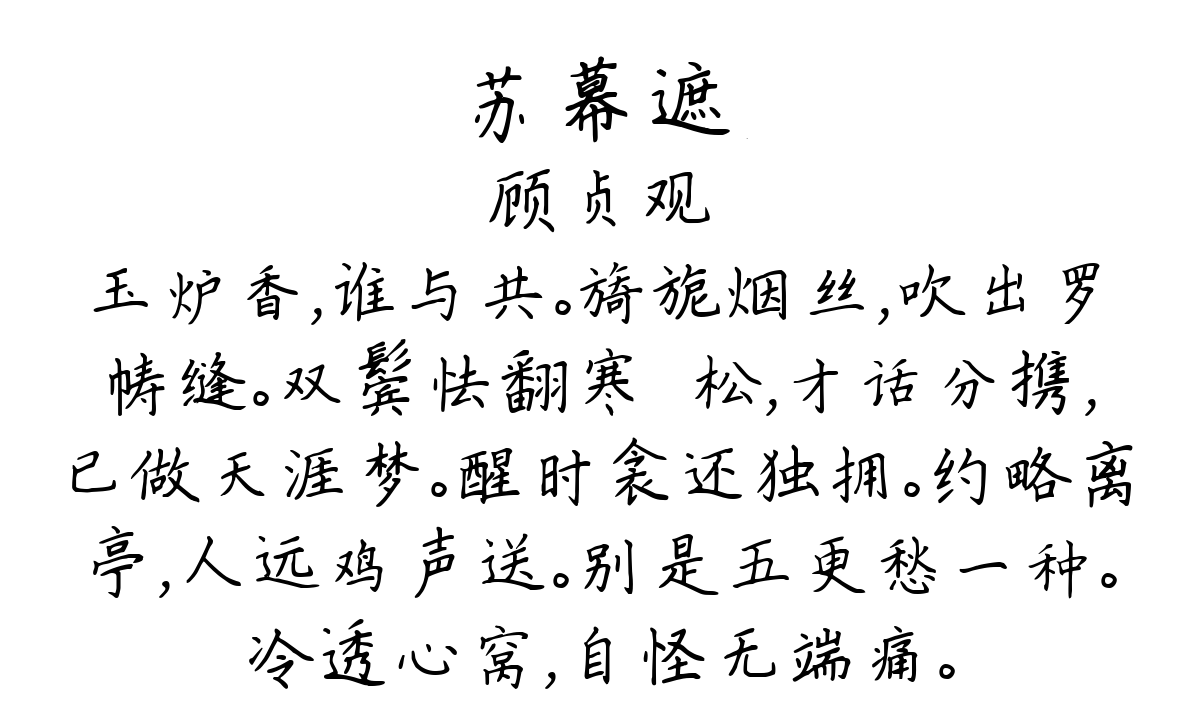 苏幕遮
顾贞观
玉炉香,谁与共。旖旎烟丝,吹出罗
帱缝。双鬓怯翻寒 松,才话分携,
已做天涯梦。醒时衾还独拥。约略离
亭,人远鸡声送。别是五更愁一种。
冷透心窝,自怪无端痛。